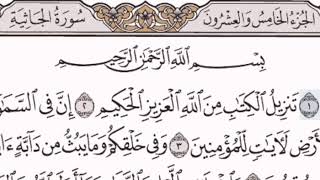 الجُزْءُ الخَامِسُ وَالعِشْرُونَ سُورَةُ الجَاثِيَةِ
بِسْمِ اللَّهِ الرَّحْمَٰنِ الرَّحِيمِ
١ تَنزِيلُ الْكِتَٰبِ مِنَ اللَّهِ الْعَزِيزِ الْحَكِيمِ ٢ إِنَّ فِي السَّمَٰ
أَرْضِ لَأٓيَٰتٍ لِّلْمُؤْمِنِينَ ٣ وَفِي خَلْقِكُمْ وَمَا يَبُثُّ مِن دَآبَّةٍ ءَا